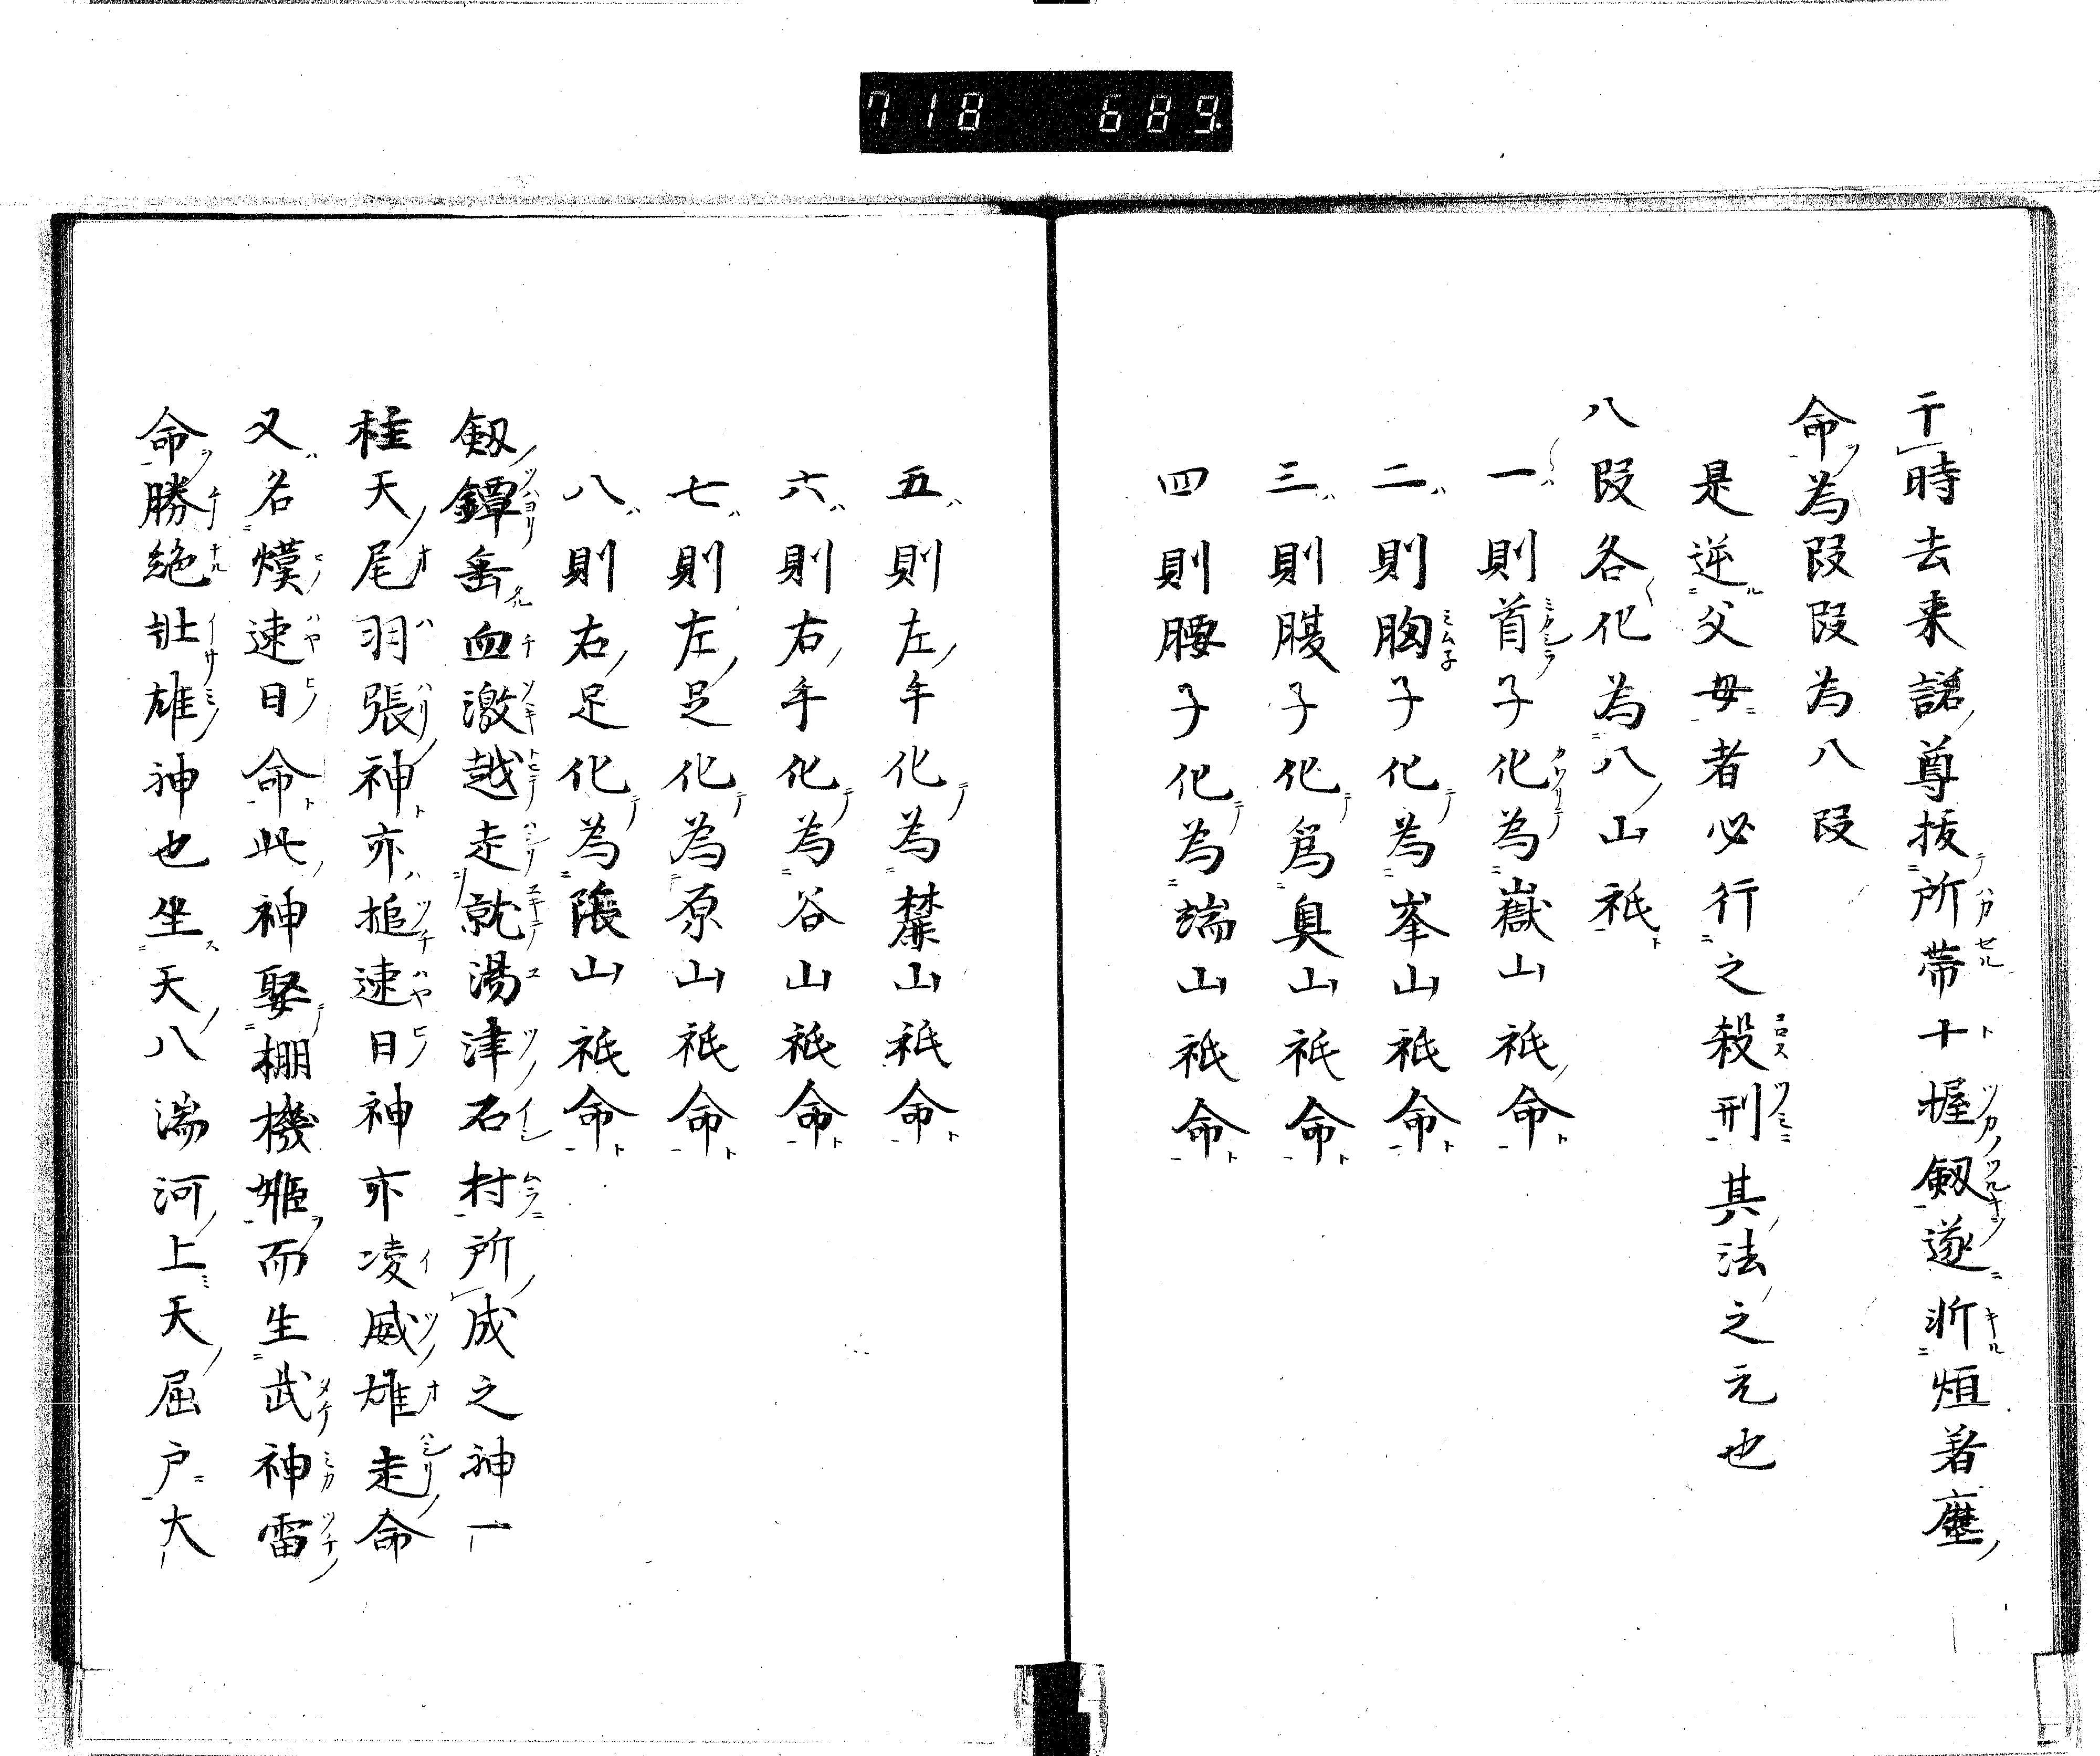 718 689
于時去来諾尊拔所帯十握劔遂斨烜著䴢
命為段段為八段
是逆父母者必行之殺刑其法之元也
八段各化為八山祇
一則首子化為嶽山祇命
二則胸子化為峯山祇命
三則腹子化爲奥山祇命
四則腰子化為端山祇命
五則左手化為麓山祇命
六則右手化為谷山祇命
七則左足化為原山祇命
八則右足化為隈山祇命
劔鐔垂血激越走就湯津石村所成之神一
柱天尾羽張神亦搥速日神亦凌威雄走命
又名熯速日命此神娶棚機姫而生武神雷
命勝絶壮雄神也坐天八湍河上天屈戸大